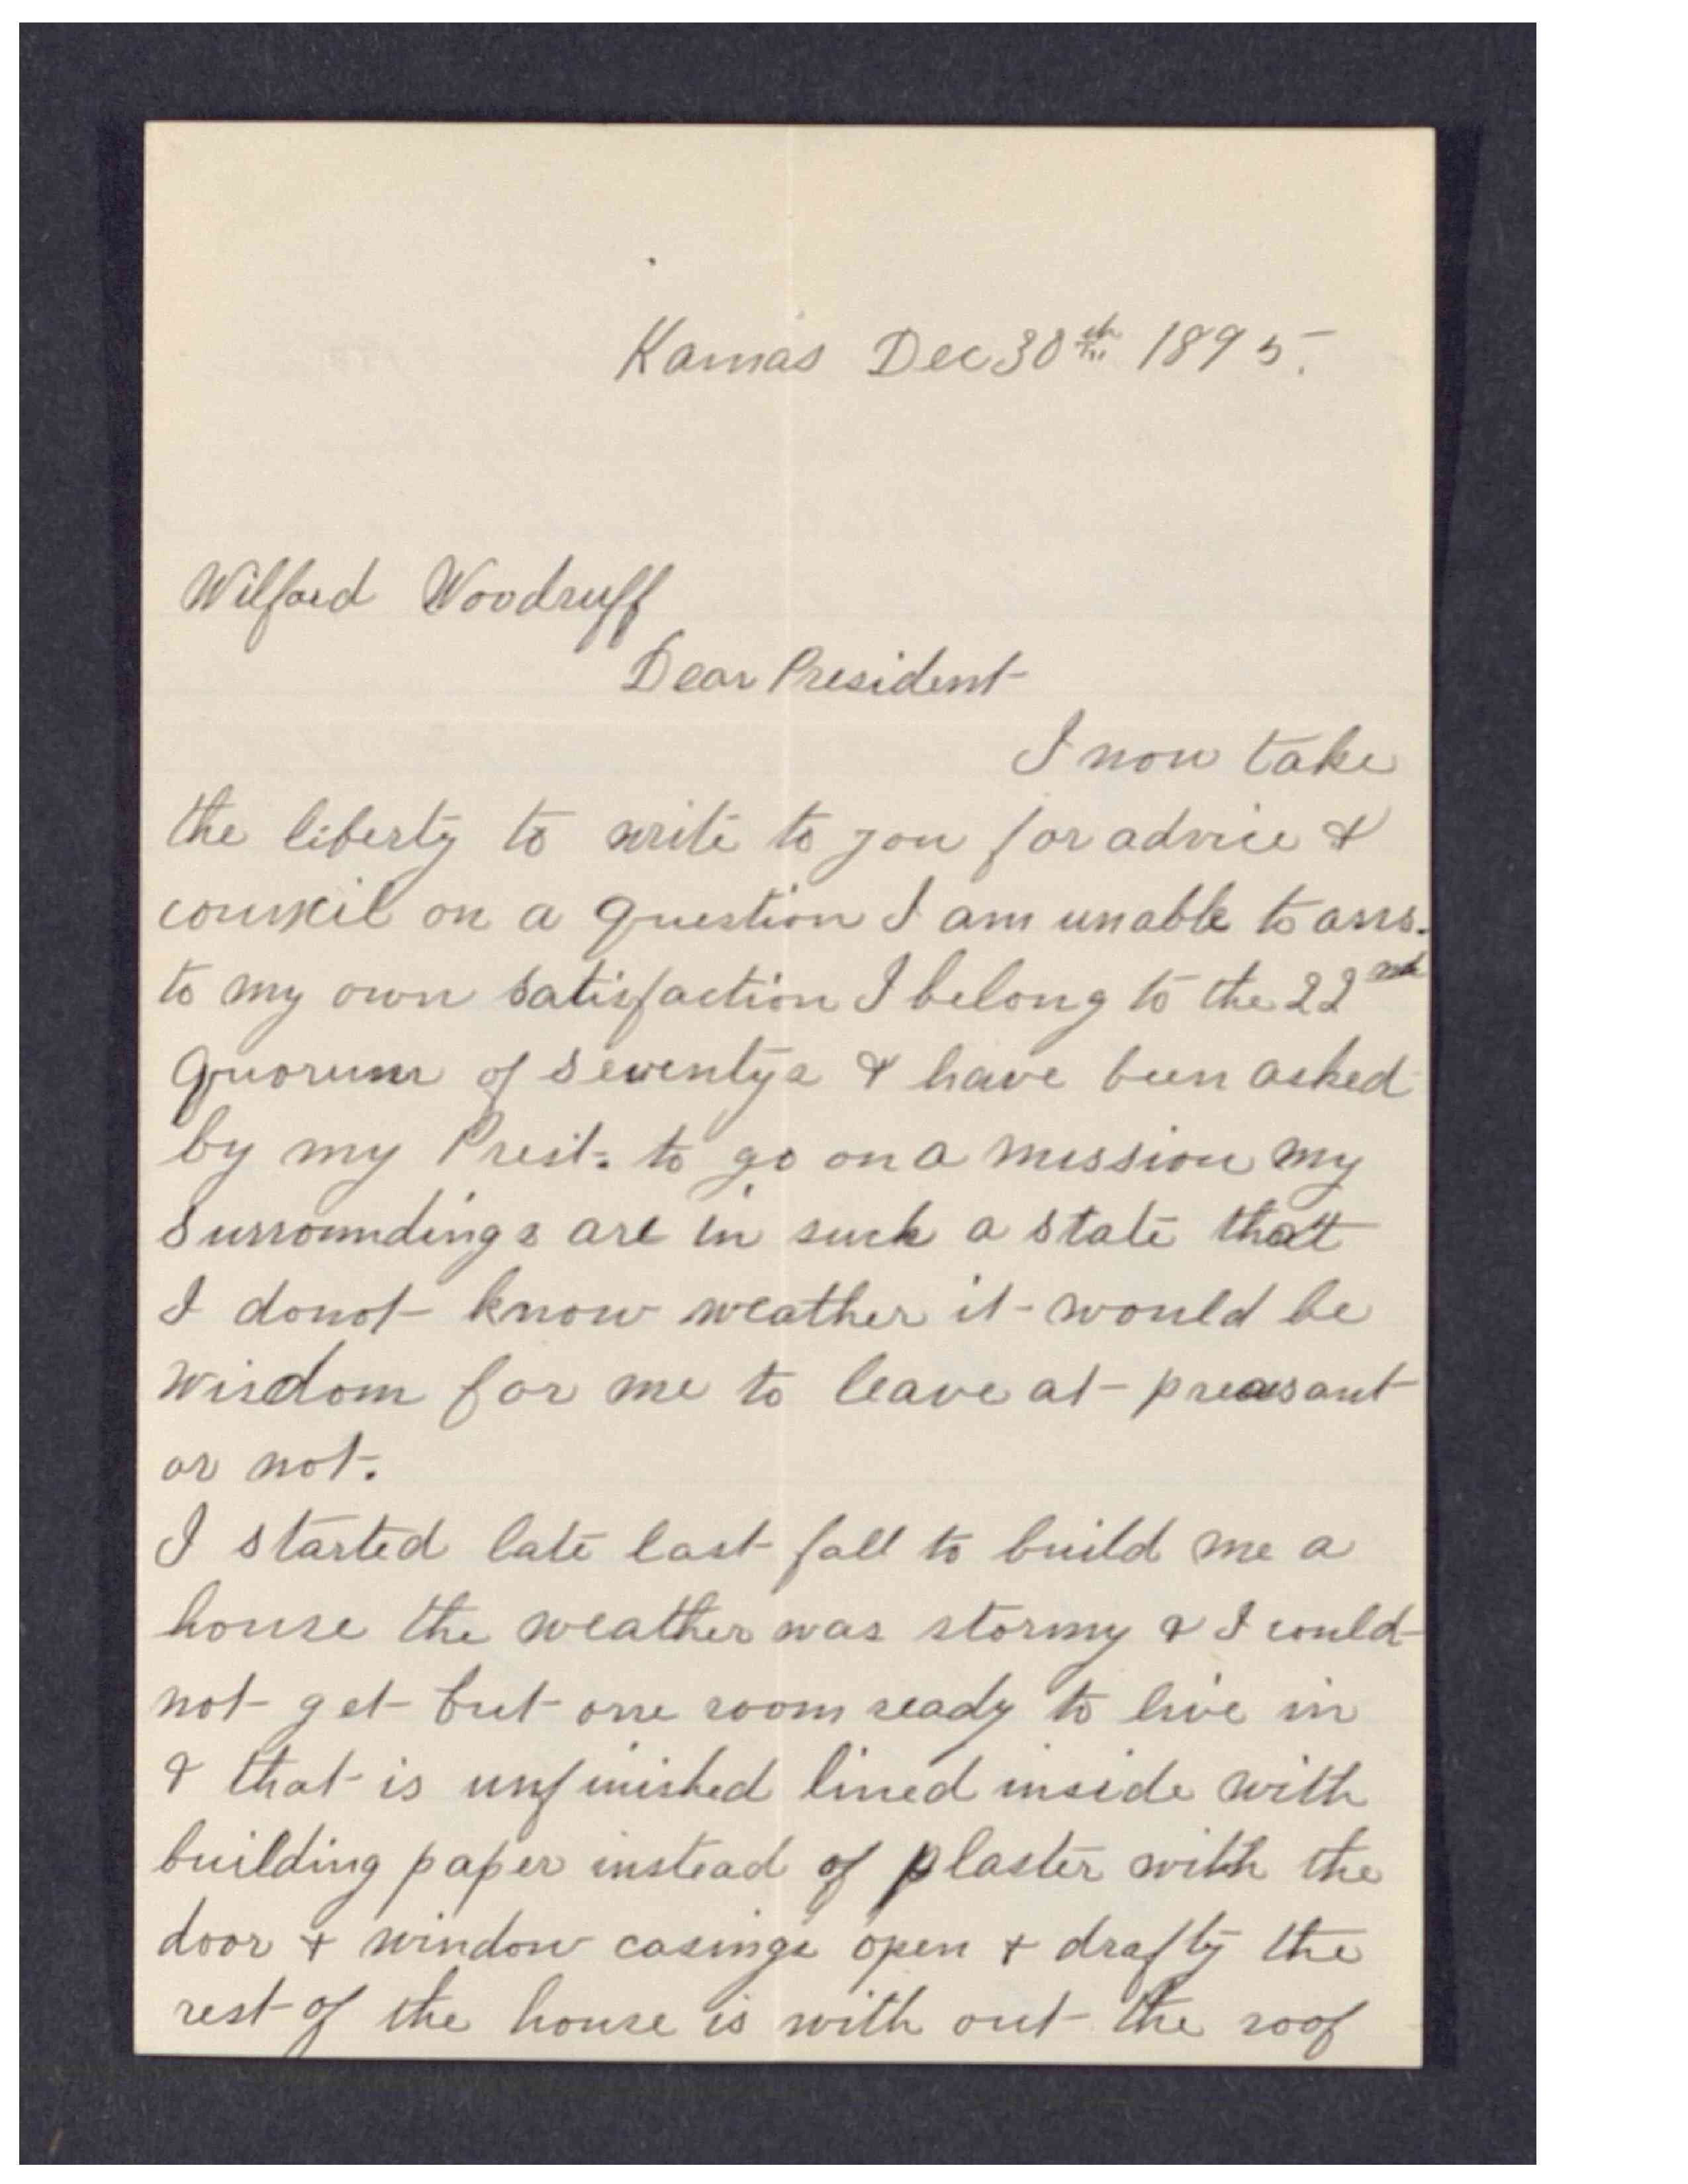 Kamas Dec 30th 1895.
Wilford Woodruff
Dear President
I now take
the liberty to write to you for advice &
council on a question I am unable to ans.
to my own satisfaction I belong to the 22nd
Quorum of Seventys & have been asked
by my Prest. to go on a mission my
surroundings are in such a state that
I donot know weather it would be
wisdom for me to leave at preasant
or not.
I started late last fall to build me a
house the weather was stormy & I could
not get but one room ready to live in
& that is unfinished lined inside with
building paper instead of plaster with the
door & window casings open & drafty the
rest of the house is with out the roof